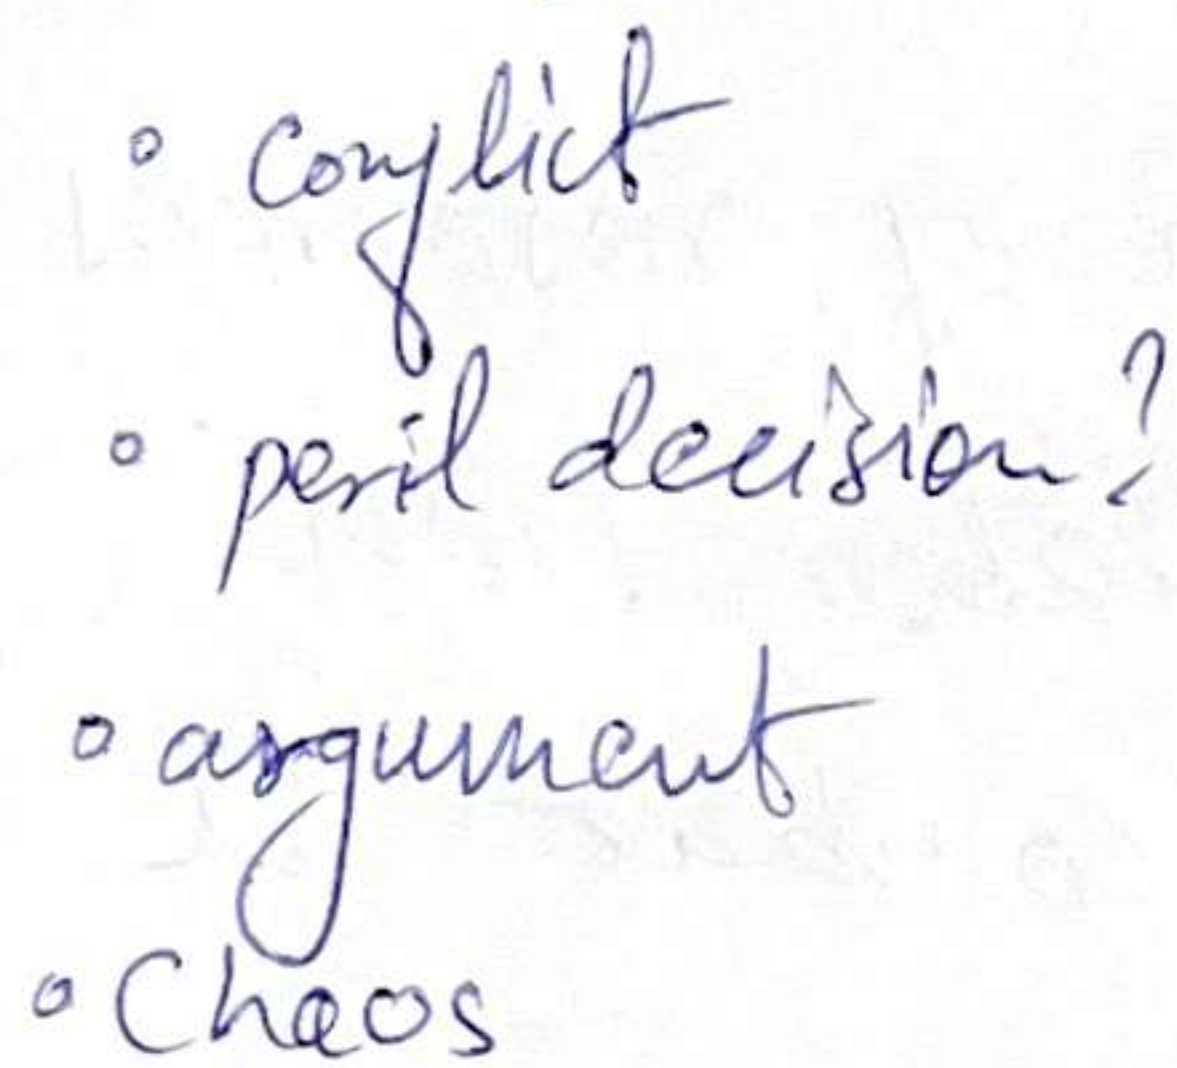 ° conflict
° peril decision?
° argument
° Chaos